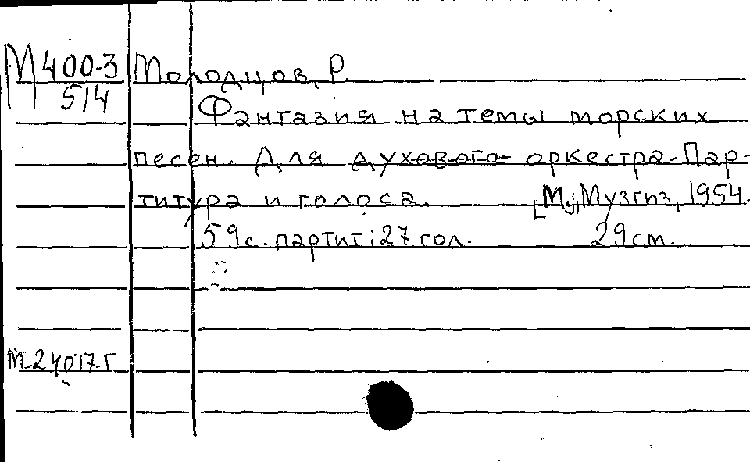 М 400-3 Молодцов, Р
5/4
Фантазия на темы морских
песен. Для духового оркестра. Пар-
титура и голоса. [М.], Музгиз, 1954.
59 с. партит; 27 гол. 29 см.
М 24017 г